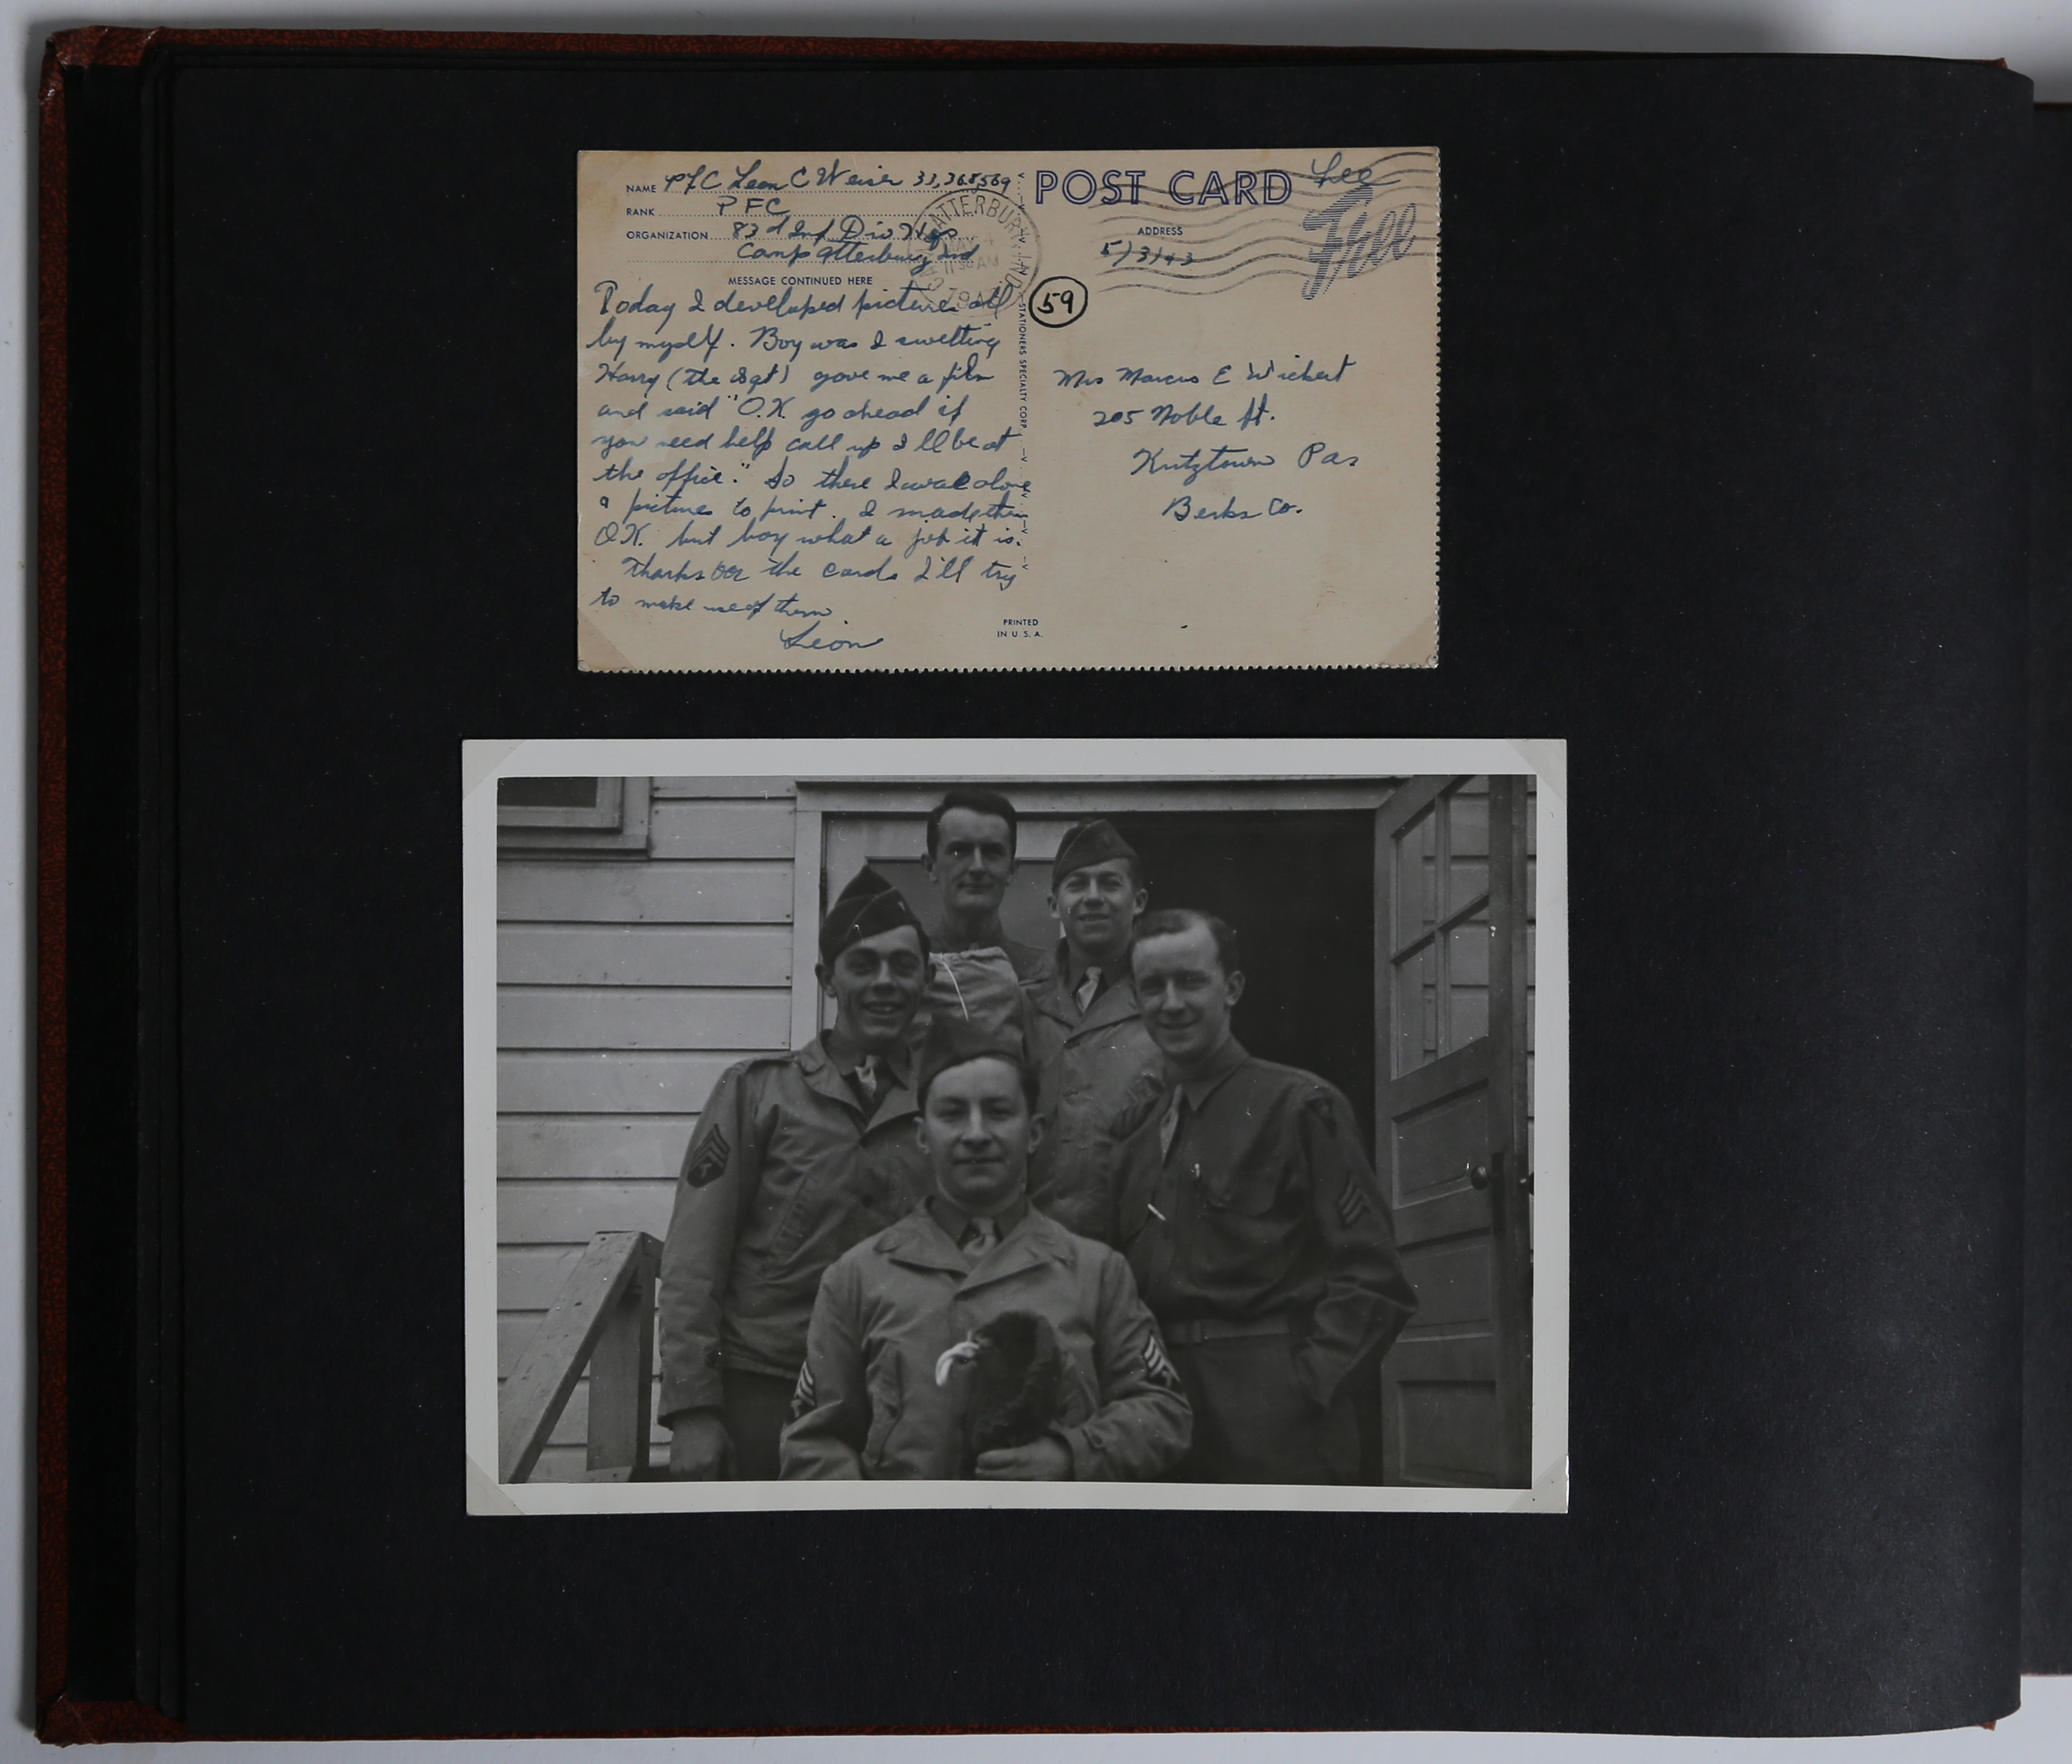 NAME PFC Leon C Weiser 33,368,569
RANK PFC
ORGANIZATION 83d Inf Div Hqs
Camp Atterbury Ind
MESSAGE CONTINUED HERE
Today I developed pictures all
by myself. Boy was I swetting
Harry (the Sgt) gave me a film
and said "O.K. go ahead if
you need help call up I'll be at
the office." So there I was alone
9 pictures to print. I made them
O.K. but boy what a job it is.
Thanks for the cards I'll try
to make use of them
Leon
ATTERBURY, IND.
MAY 4
11 30 AM
STATIONERS SPECIALTY CORP.
PRINTED
IN U.S.A.
POST CARD
Free
ADDRESS
5/3/43
59
Mrs Marcus E Wickert
205 Noble St.
Kutztown Pa
Berks Co.